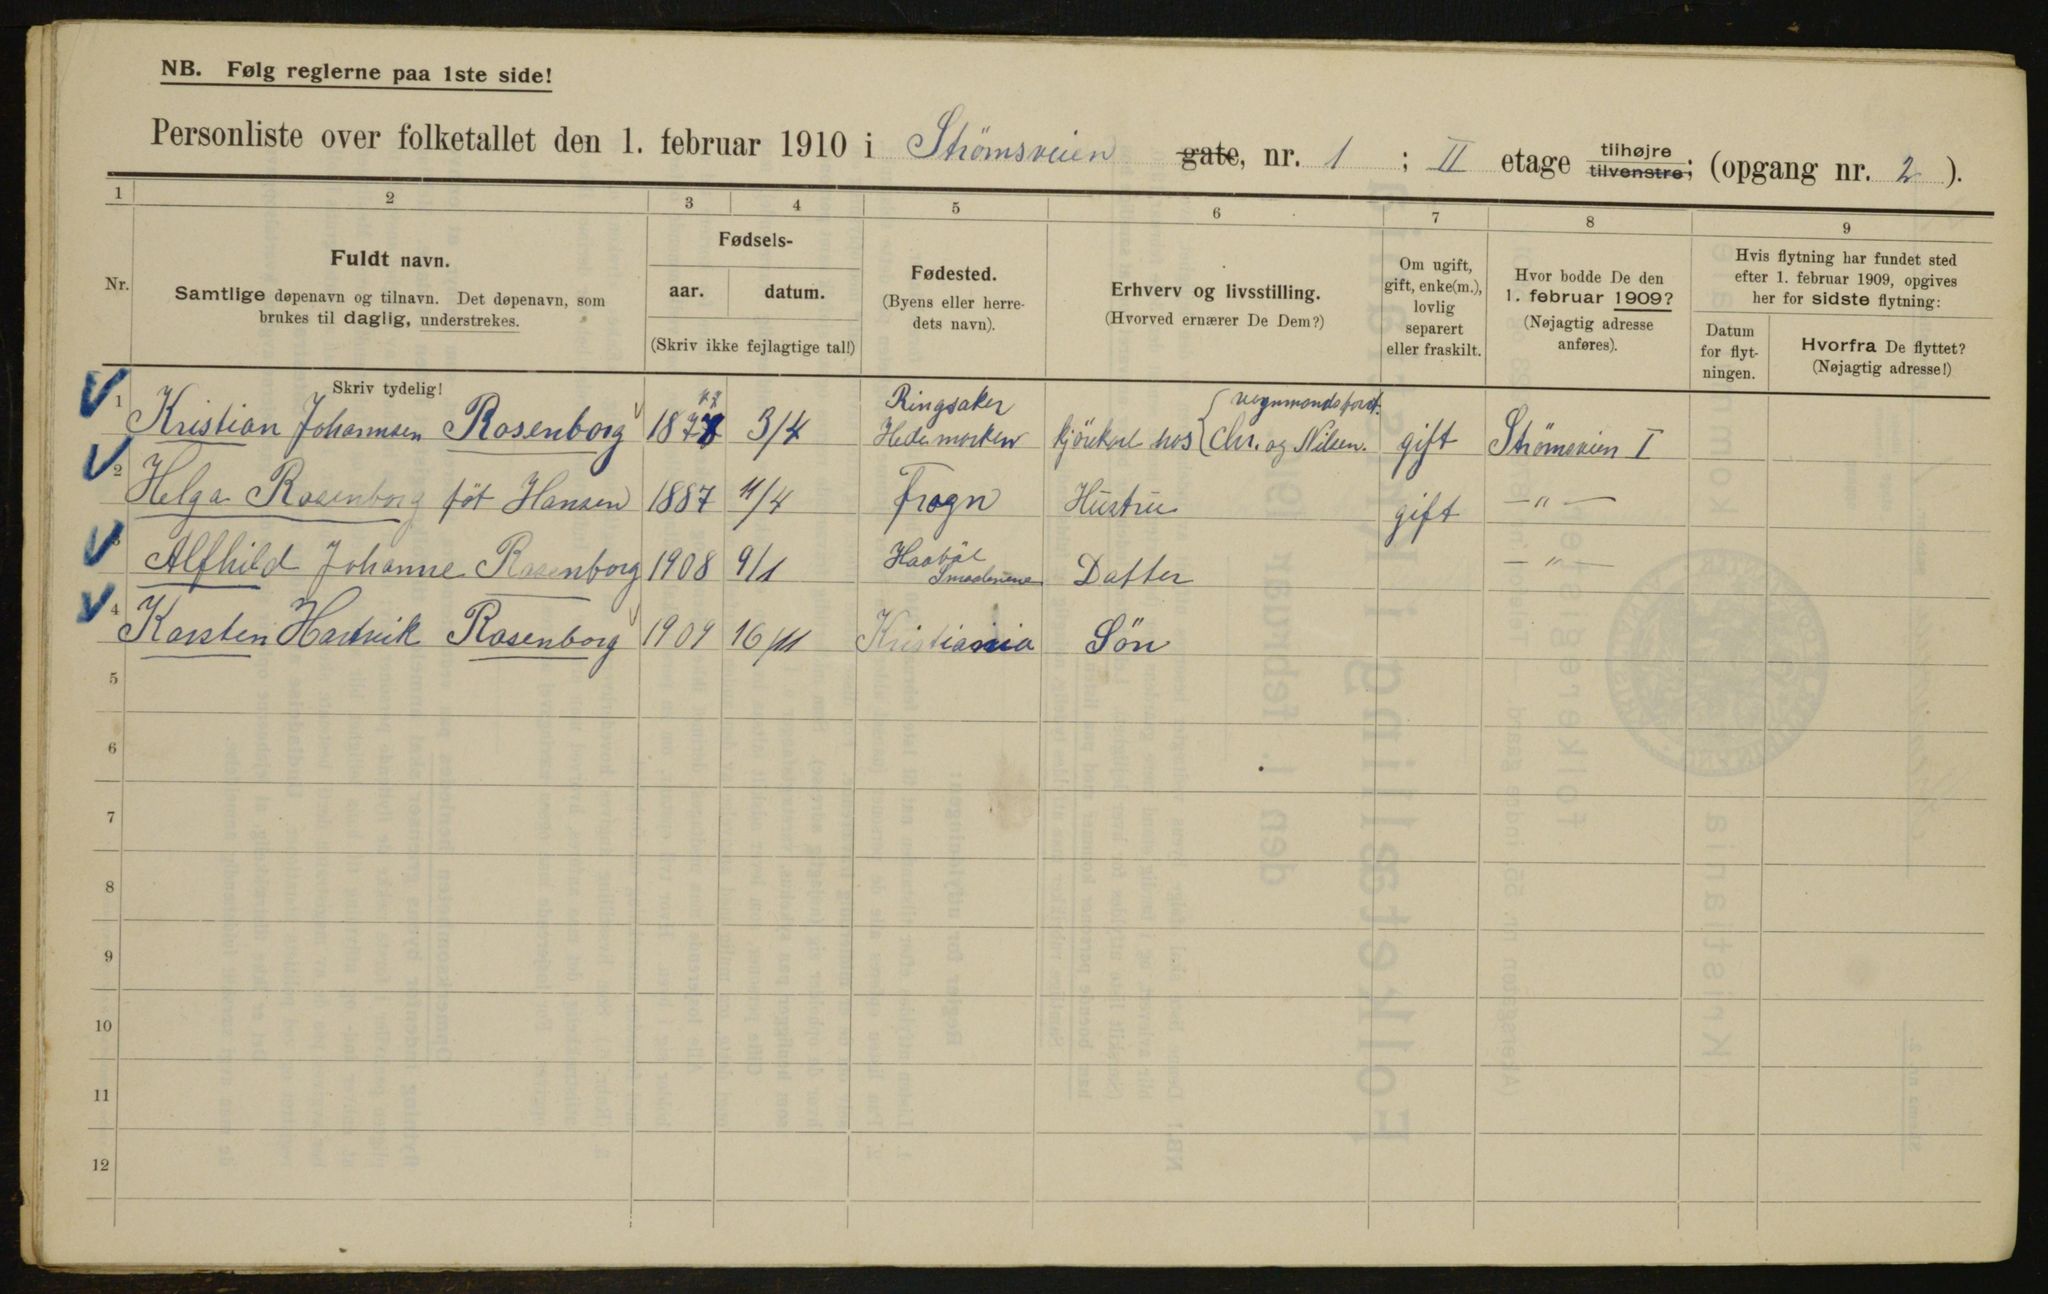 NB. Følg reglerne paa 1ste side!
Personliste over folketallet den 1. februar 1910 i Strømsveien gate, nr. 1 ; II etage tilhøjre tilvenstre; (opgang nr. 2 ).
1 2 3 4 5 6 7 8 9
Nr.
Fuldt navn.
Samtlige døpenavn og tilnavn. Det døpenavn, som
brukes til daglig, understrekes.
Skriv tydelig!
Fødsels-
aar. datum.
(Skriv ikke fejlagtige tal!)
Fødested.
(Byens eller herre-
dets navn).
Erhverv og livsstilling.
(Hvorved ernærer De Dem?)
Om ugift,
gift, enke(m.),
lovlig
separert
eller fraskilt.
Hvor bodde De den
1. februar 1909?
(Nøjagtig adresse
anføres).
Hvis flytning har fundet sted
efter 1. februar 1909, opgives
her for sidste flytning:
Datum
for flyt-
ningen.
Hvorfra De flyttet?
(Nøjagtig adresse!)
1 Kristian Johannsen Rosenborg 3/4 Ringsaker
Hedemarken kjörekarl hos Chr. og Nilsen. gift Strömsveien I
2 Helga Rosenborg föt Hansen 1887 11/4 Frogn Hustru gift — " —
3 Alfhild Johanne Rosenborg 1908 9/1 Haaböl
Smaalenene Datter — " —
4 Karsten Hartvik Rosenborg 1909 16/11 Kristiania Sön
5
6
7
8
9
10
11
12